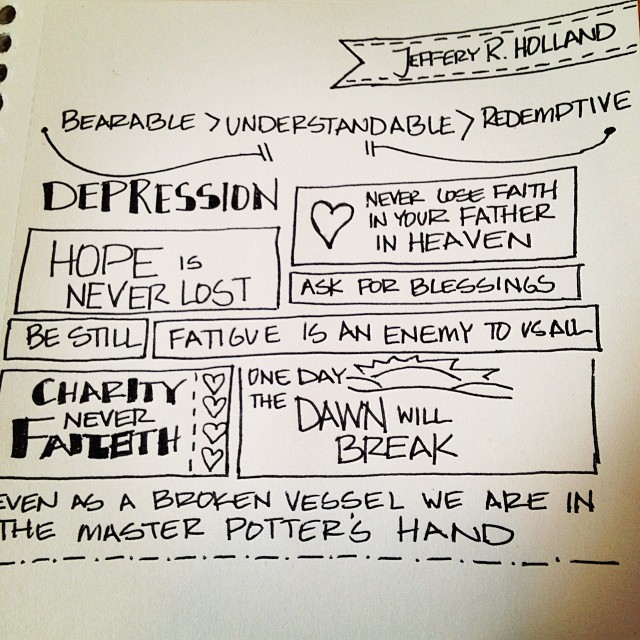 JEFFERY R. HOLLAND
BEARABLE > UNDERSTANDABLE > REDEMPTIVE
DEPRESSION
NEVER LOSE FAITH
IN YOUR FATHER
IN HEAVEN
HOPE IS
NEVER LOST
ASK FOR BLESSINGS
BE STILL
FATIGUE IS AN ENEMY TO US ALL
CHARITY
NEVER
FAILETH
ONE DAY
THE DAWN WILL
BREAK
EVEN AS A BROKEN VESSEL WE ARE IN
THE MASTER POTTER'S HAND